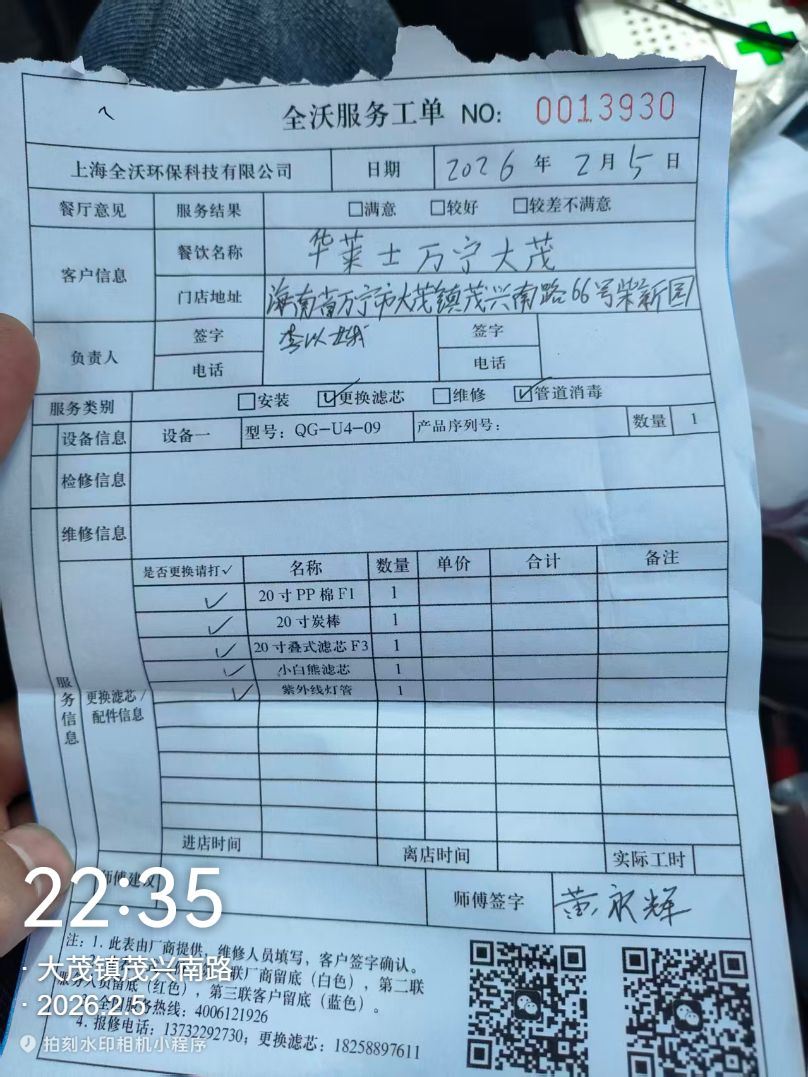 全沃服务工单 NO: 0013930
上海全沃环保科技有限公司 日期 2026 年 2 月 5 日
餐厅意见 服务结果 □满意 □较好 □较差不满意
客户信息 餐饮名称 华莱士万宁大茂
门店地址 海南省万宁市大茂镇茂兴南路66号柴新园
负责人 签字 签字
电话 电话
服务类别 □安装 ☑更换滤芯 □维修 ☑管道消毒
设备信息 设备一 型号: QG-U4-09 产品序列号: 数量 1
检修信息
维修信息
服务信息 更换滤芯/配件信息
是否更换请打✓ 名称 数量 单价 合计 备注
✓ 20寸PP棉F1 1
✓ 20寸炭棒 1
✓ 20寸叠式滤芯F3 1
✓ 小白熊滤芯 1
✓ 紫外线灯管 1
进店时间 离店时间 实际工时
师傅建议 师傅签字 黄永辉
注: 1. 此表由厂商提供, 维修人员填写, 客户签字确认。
联厂商留底(白色), 第二联
服务人员留底(红色), 第三联客户留底(蓝色)。
服务热线: 4006121926
4. 报修电话: 13732292730; 更换滤芯: 18258897611
22:35
· 大茂镇茂兴南路
· 2026.2.5
拍刻水印相机小程序